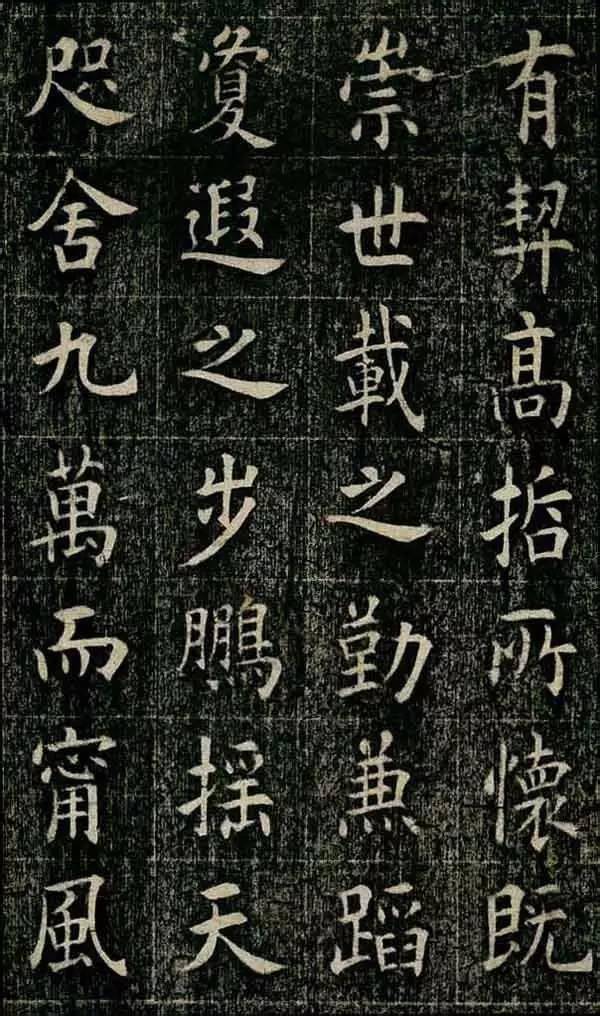 有契高哲所懷既
崇世載之勤兼蹈
敻遐之步鵬摇天
咫舍九萬而甯風